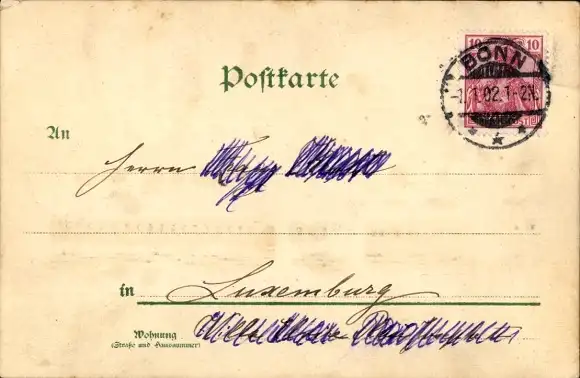 10 10
BONN
-1.1.02.1-2N.
Postkarte
An
Herrn
in Luxemburg
Wohnung
(Straße und Hausnummer)